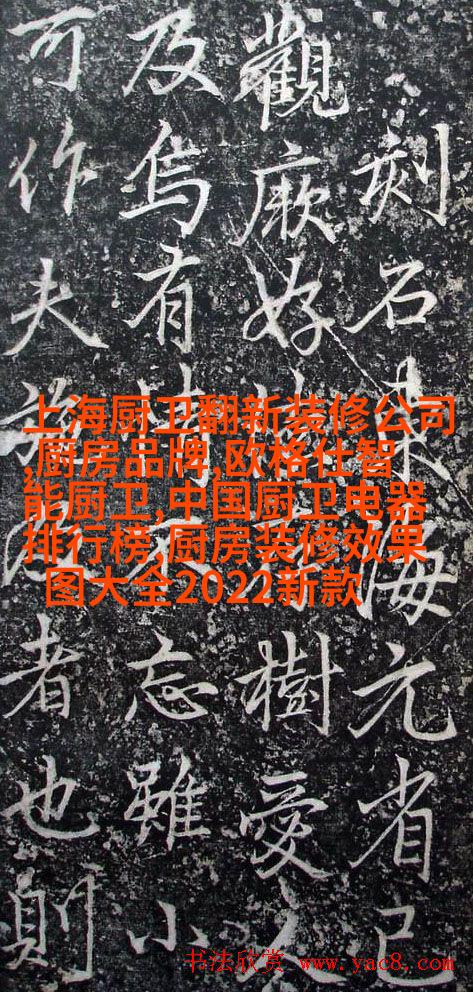 刻石東海元省己
觀厥好樹愛
及焉有忘雖小
可作夫者也則
上海厨卫翻新装修公司
,厨房品牌,欧格仕智
能厨卫,中国厨卫电器
排行榜,厨房装修效果
图大全2022新款
书法欣赏 www.yac8.com